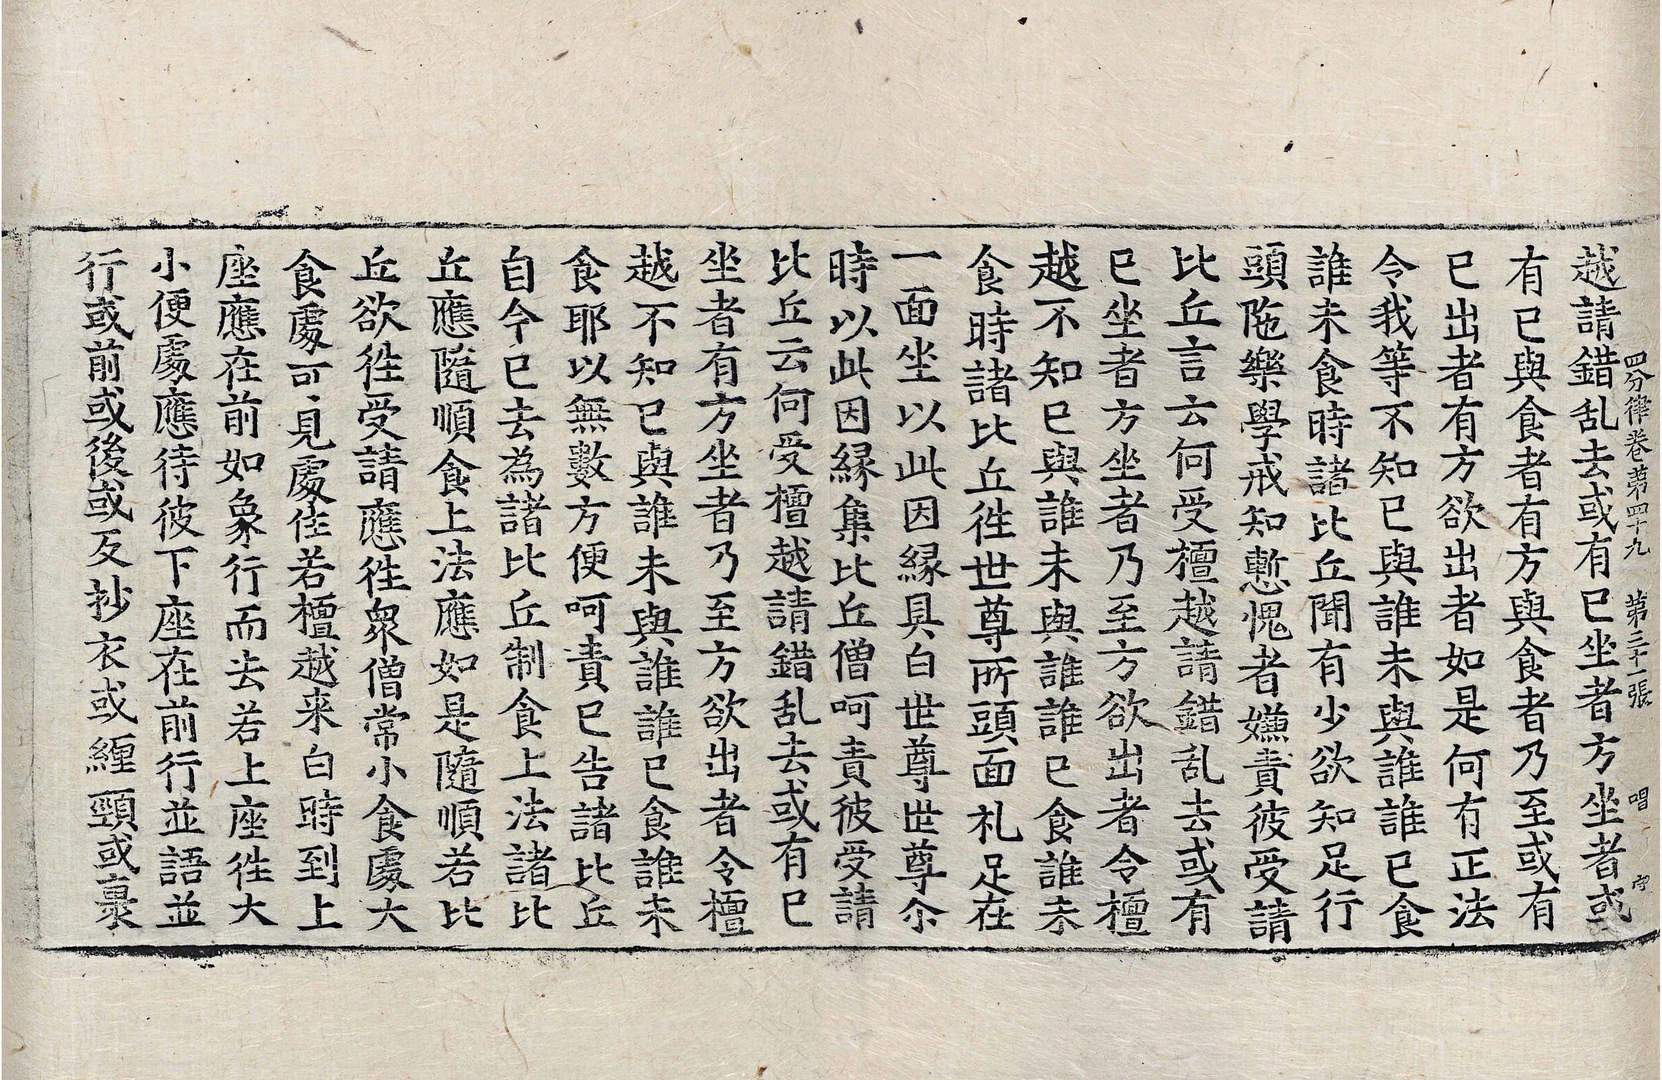 四分律卷苐四十九 第三十一張 唱 守
越請錯乱去或有巳坐者方坐者或
有巳與食者有方與食者乃至或有
巳出者有方欲出者如是何有正法
令我等不知巳與誰未與誰誰巳食
誰未食時諸比丘聞有少欲知足行
頭陁樂學戒知慙愧者嫌責彼受請
比丘言云何受檀越請錯乱去或有
巳坐者方坐者乃至方欲出者令檀
越不知巳與誰未與誰誰巳食誰未
食時諸比丘徃世尊所頭面礼足在
一面坐以此因縁具白世尊世尊尒
時以此因縁集比丘僧呵責彼受請
比丘云何受檀越請錯乱去或有巳
坐者有方坐者乃至方欲出者令檀
越不知巳與誰未與誰誰巳食誰未
食耶以無數方便呵責巳告諸比丘
自今巳去為諸比丘制食上法諸比
丘應隨順食上法應如是隨順若比
丘欲徃受請應徃衆僧常小食處大
食處可見處住若檀越来白時到上
座應在前如象行而去若上座徃大
小便處應待彼下座在前行並語並
行或前或後或反抄衣或纒頸或裹